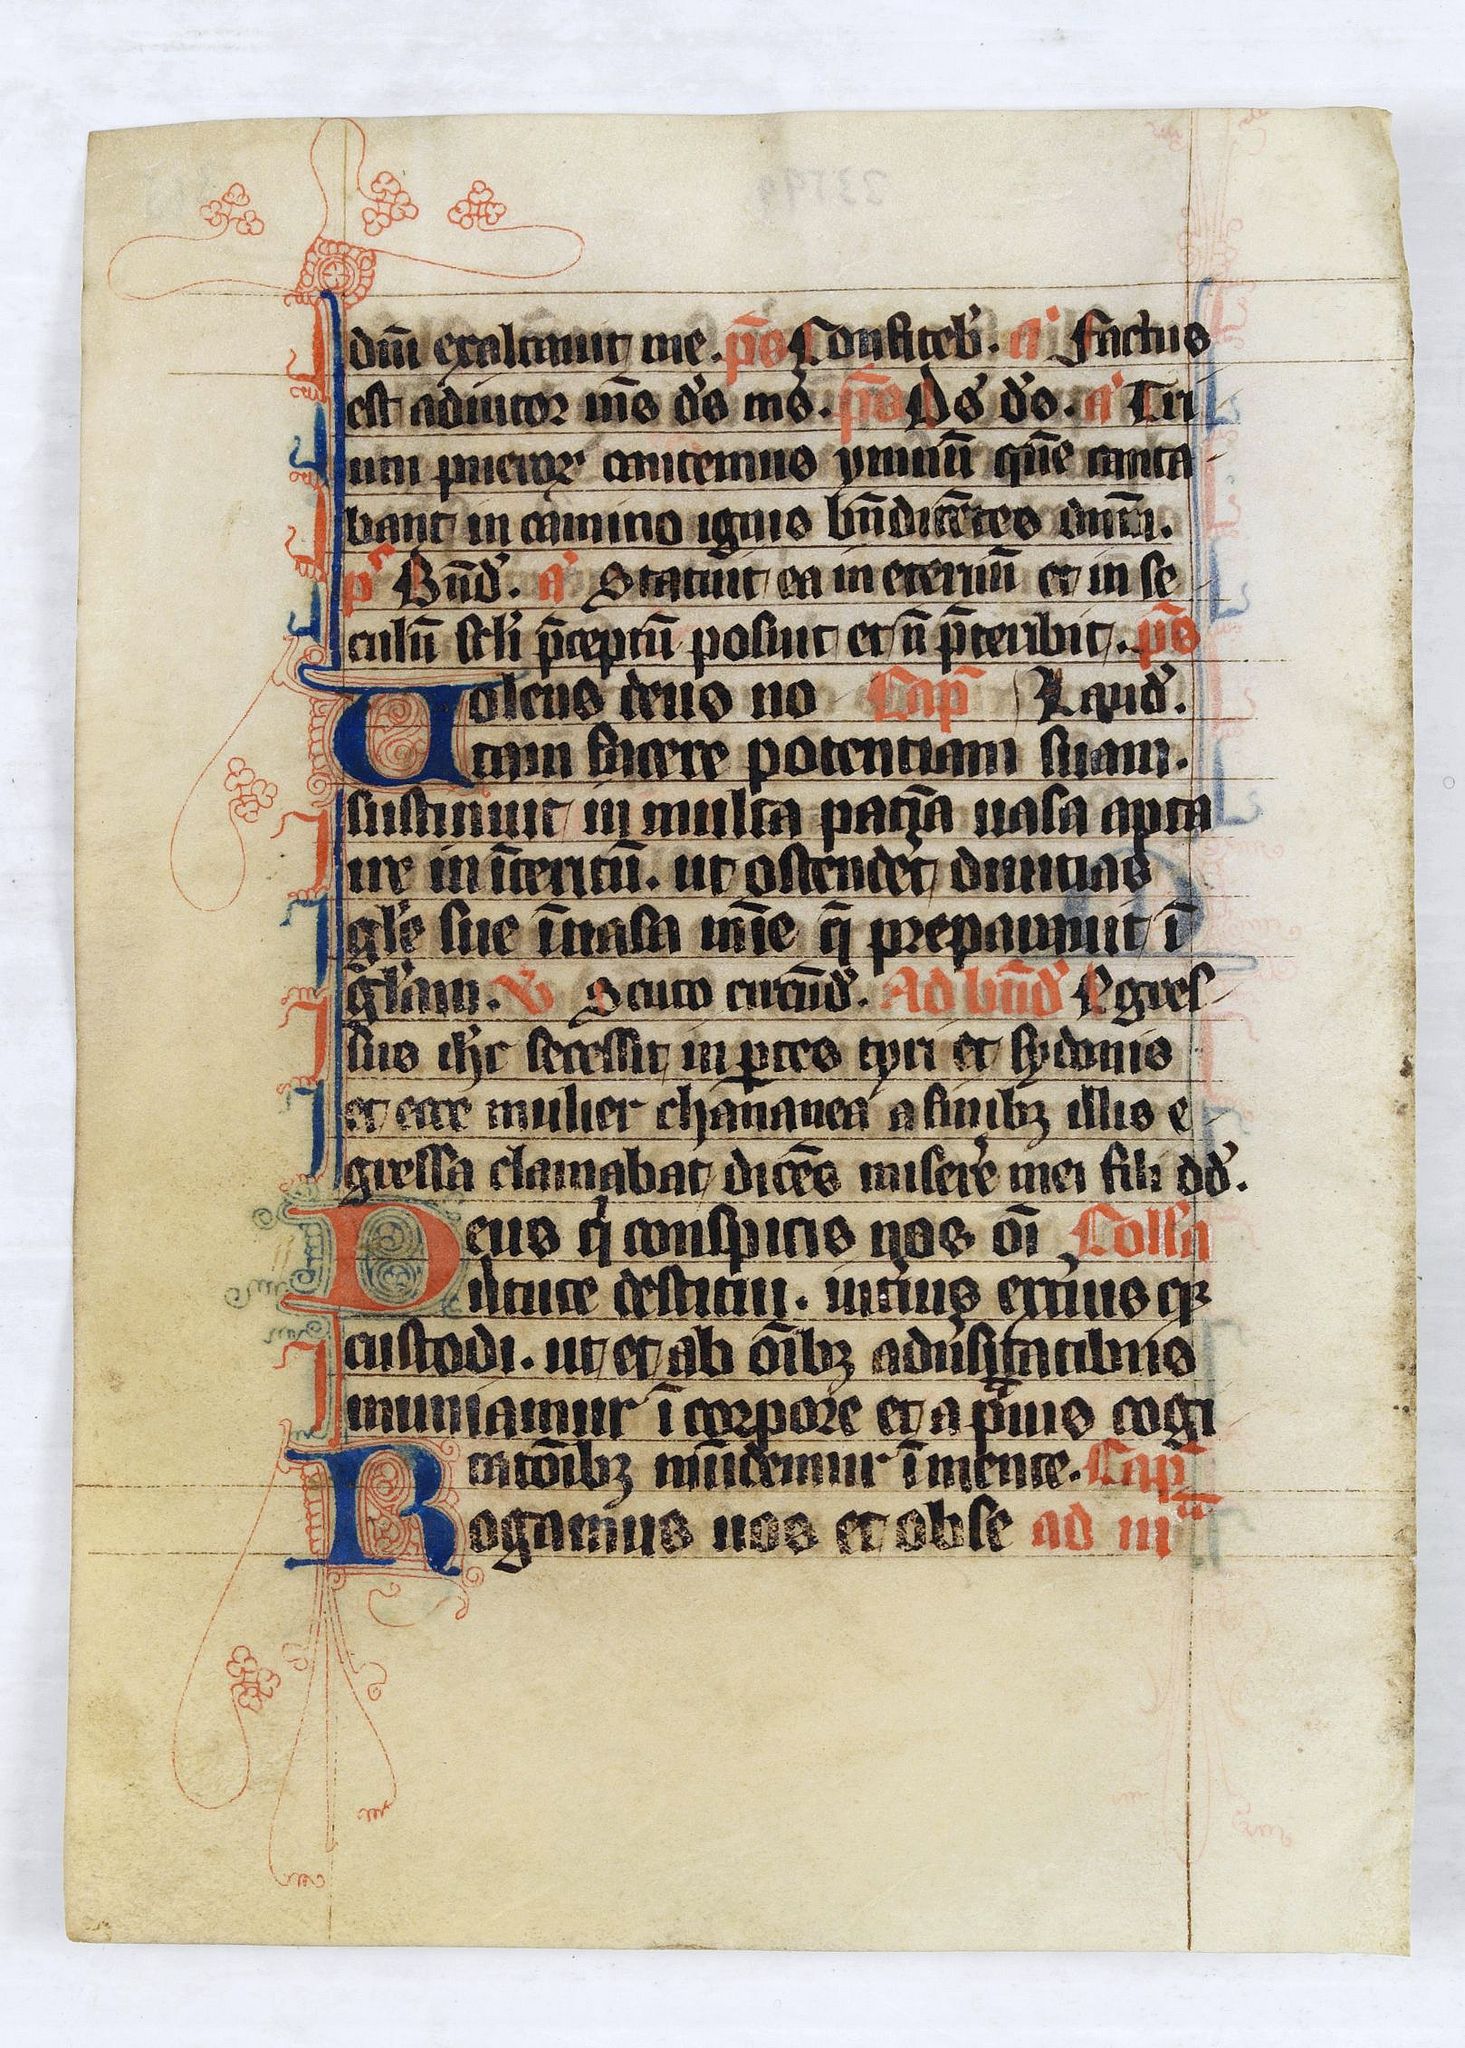 dnī exaltauit me. p̄s Confiteb᷒. a᷒ Factus
est adiutor m̄s d᷒s m᷒s. p̄s D᷒s d᷒s. a᷒ Tri
um pueroꝝ cantemus ymnū quē canta
bant in camino ignis bn̄dicētes dnm̄.
p᷒s Bn̄d᷒. a᷒ Statuit ea in eternū et in se
culū scl᷒i p̄ceptū posuit et n̄ p̄teribit. p̄s
Uolens deus no Cap̄ Laud᷒.
tam facere potentiam suam.
sustinuit in multa paciē̄a uasa apta
ire in īteritū. ut ostender᷒t diuitias
gl᷒e sue ī uasa mīe q̄ preparauit ī
gl᷒am. V᷒ Scuto circūd᷒. Ad bn̄d᷒ Egres
sus ih᷒c secessit in ꝑtes tyri et sydonis
et ecce mulier chananea a finibꝫ illis e
gressa clamabat dicēs miser᷒e mei fili dd᷒.
Deus q̇ conspicis nos oī Collā
uirtute destitui. int᷒ius ext᷒iusqꝫ
custodi. ut et ab oībꝫ adu᷒sitatibus
muniamur ī corpore et a p̄uis cogi
tatōibꝫ mūdemur ī mente. Cap̄
Rogamus uos et obse ad iiiᵃ